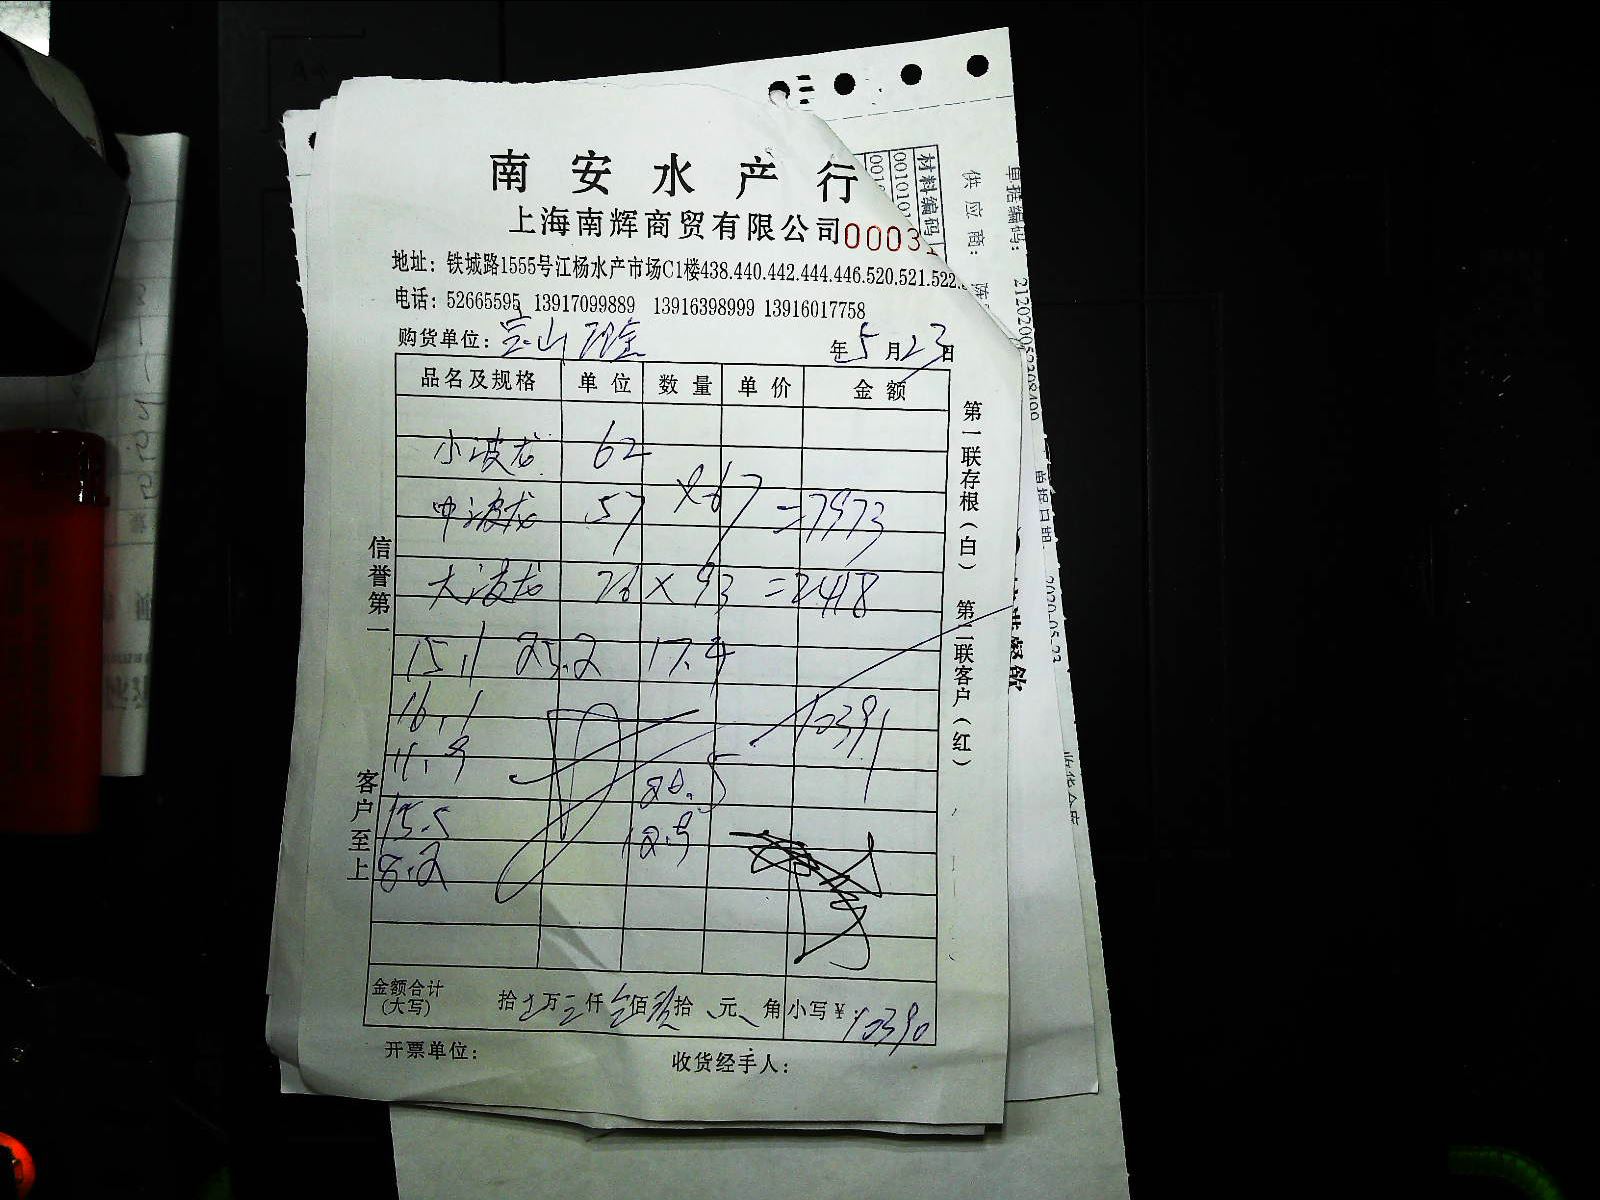 南安水产行
上海南辉商贸有限公司
0003
地址：铁城路1555号江杨水产市场C1楼438.440.442.444.446.520.521.522.
电话：52665595 13917099889 13916398999 13916017758
购货单位：宝山 年5月23日
品名及规格 单位 数量 单价 金额
小波龙 62
中波龙 57 ×67 =7973
大波龙 26 × 93 =2418
15.1 25.2 17.4
16.1 10391
11.9
20.5
15.5 12.9
8.2
金额合计（大写） 拾 万 仟 佰 拾 元 角 小写¥ 10390
开票单位： 收货经手人：
信誉第一
客户至上
第一联存根（白） 第二联客户（红）
材料编码
001010
001
供应商：
单据编码：
2020-05-23